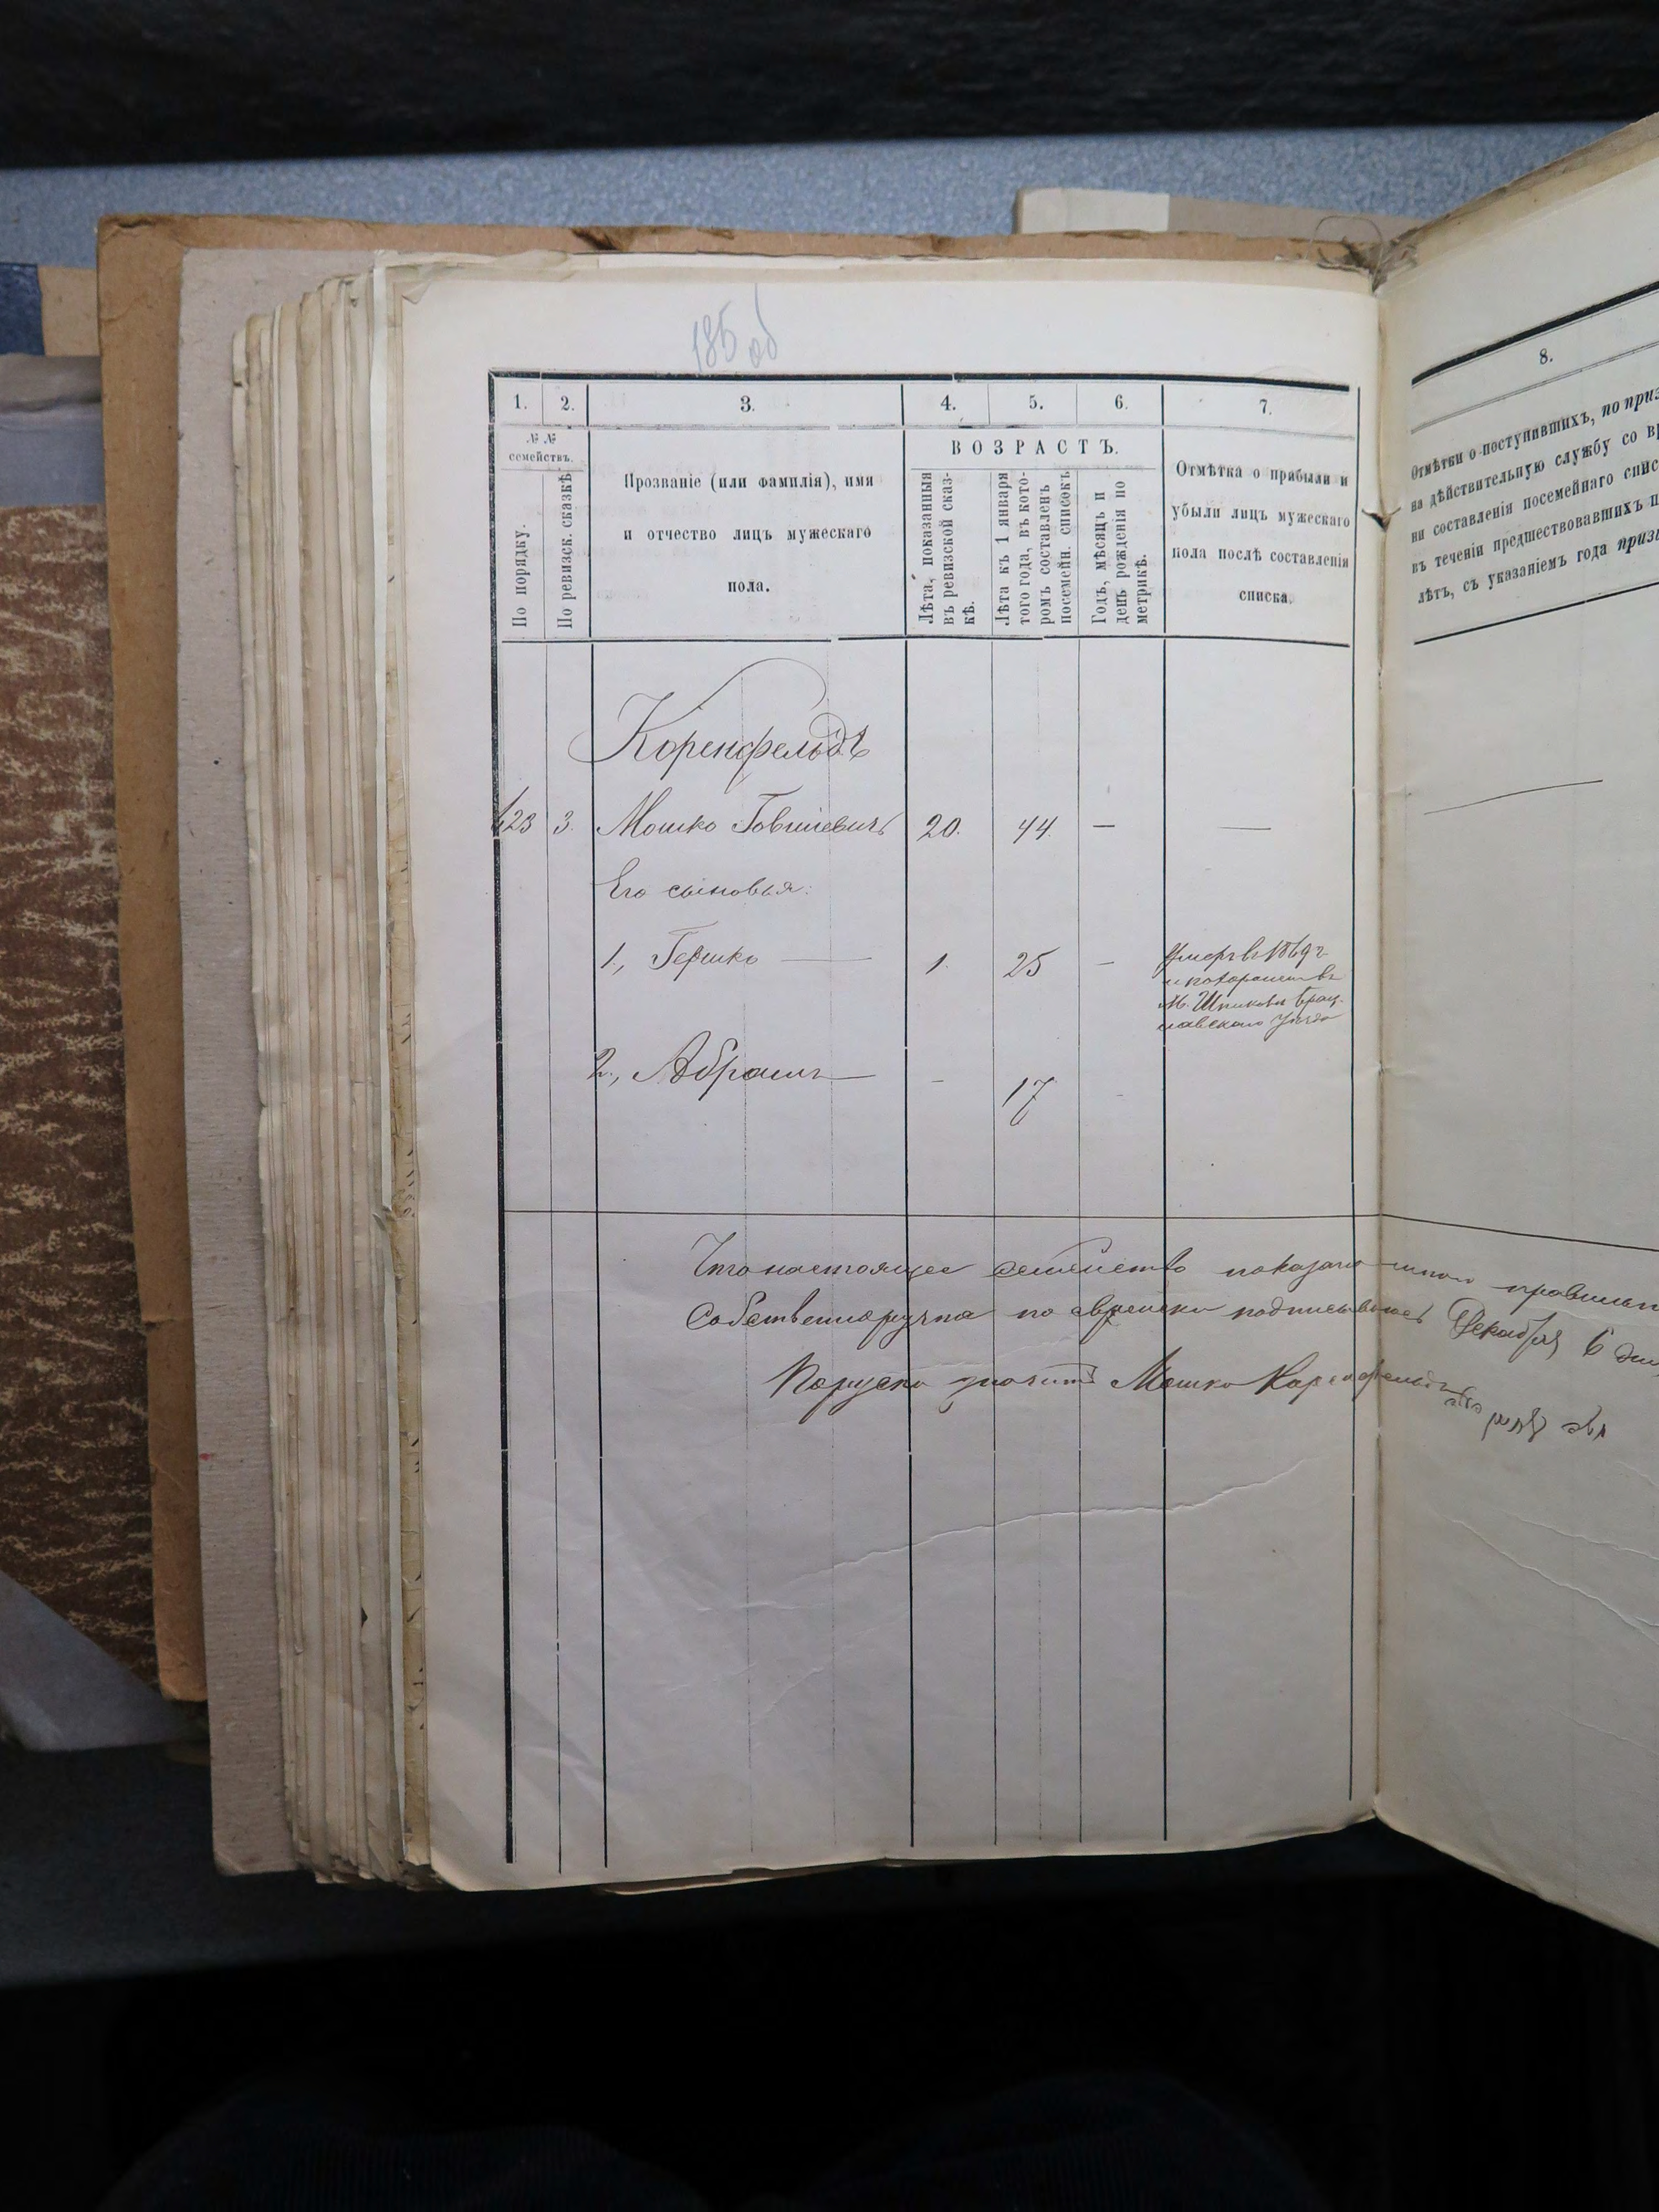 185 об
1. 2. 3. 4. 5. 6. 7.
№ №
семействъ.
По порядку.
По ревизск. сказкѣ
Прозваніе (или фамилія), имя
и отчество лицъ мужескаго
пола.
ВОЗРАСТЪ.
Лѣта, показанныя
въ ревизской сказ-
кѣ.
Лѣта къ 1 января
того года, въ кото-
ромъ составленъ
посемейн. списокъ
Годъ, мѣсяцъ и
день рожденія по
метрикѣ.
Отмѣтка о прибыли и
убыли лицъ мужескаго
пола послѣ составленія
списка.
Коренфельдъ
123 3. Мошко Говшіевичъ 20. 44. — —
Его сыновья:
1., Гершко — 1. 25 —
Умеръ въ 1869 г.
и похороненъ въ
М. Шпиковѣ Брац-
лавскаго уѣзда
2., Абрамъ — - 17
Что настоящее семейство показано мною
Собственноручно по еврейски подписываюсь Декабря 6 дня
По русски значитъ Мошко Коренфельдъ
8.
Отмѣтки о поступившихъ, по приз
на дѣйствительную службу со вр
ни составленія посемейнаго спис
въ теченіи предшествовавшихъ п
лѣтъ, съ указаніемъ года приз